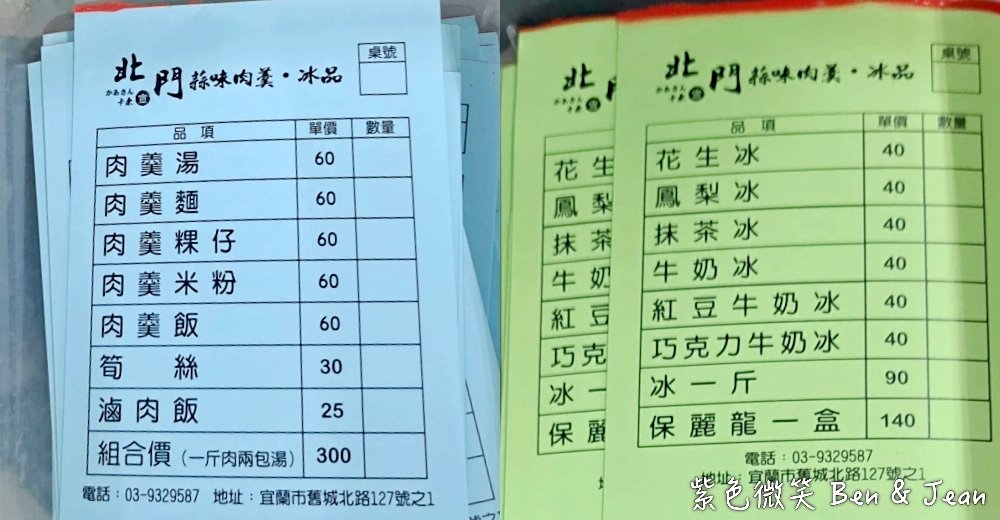 北門蒜味肉羹·冰品
かあさん
卡桑 宜
桌號
品項 單價 數量
肉羹湯 60
肉羹麵 60
肉羹粿仔 60
肉羹米粉 60
肉羹飯 60
筍絲 30
滷肉飯 25
組合價（一斤肉兩包湯） 300
電話：03-9329587 地址：宜蘭市舊城北路127號之1
北
かあさん
花生
鳳梨
抹茶
牛奶
紅豆
巧克
冰一
保麗
北門蒜味肉羹·冰品
かあさん
卡桑 宜
桌號
品項 單價 數量
花生冰 40
鳳梨冰 40
抹茶冰 40
牛奶冰 40
紅豆牛奶冰 40
巧克力牛奶冰 40
冰一斤 90
保麗龍一盒 140
電話：03-9329587
地址：宜蘭市舊城北路127號之1
紫色微笑 Ben & Jean